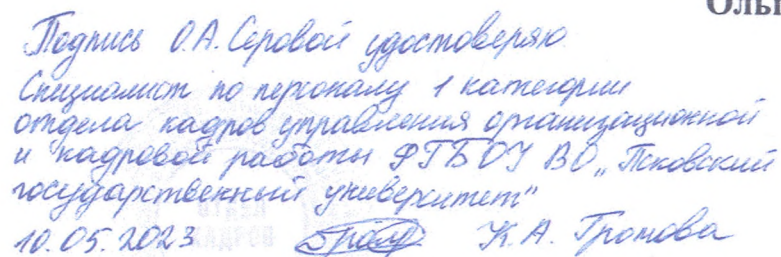 Подпись О.А. Серовой удостоверяю
Специалист по персоналу 1 категории
отдела кадров управления организационной
и кадровой работы ФГБОУ ВО „Псковский
государственный университет"
10.05.2023 К.А. Громова